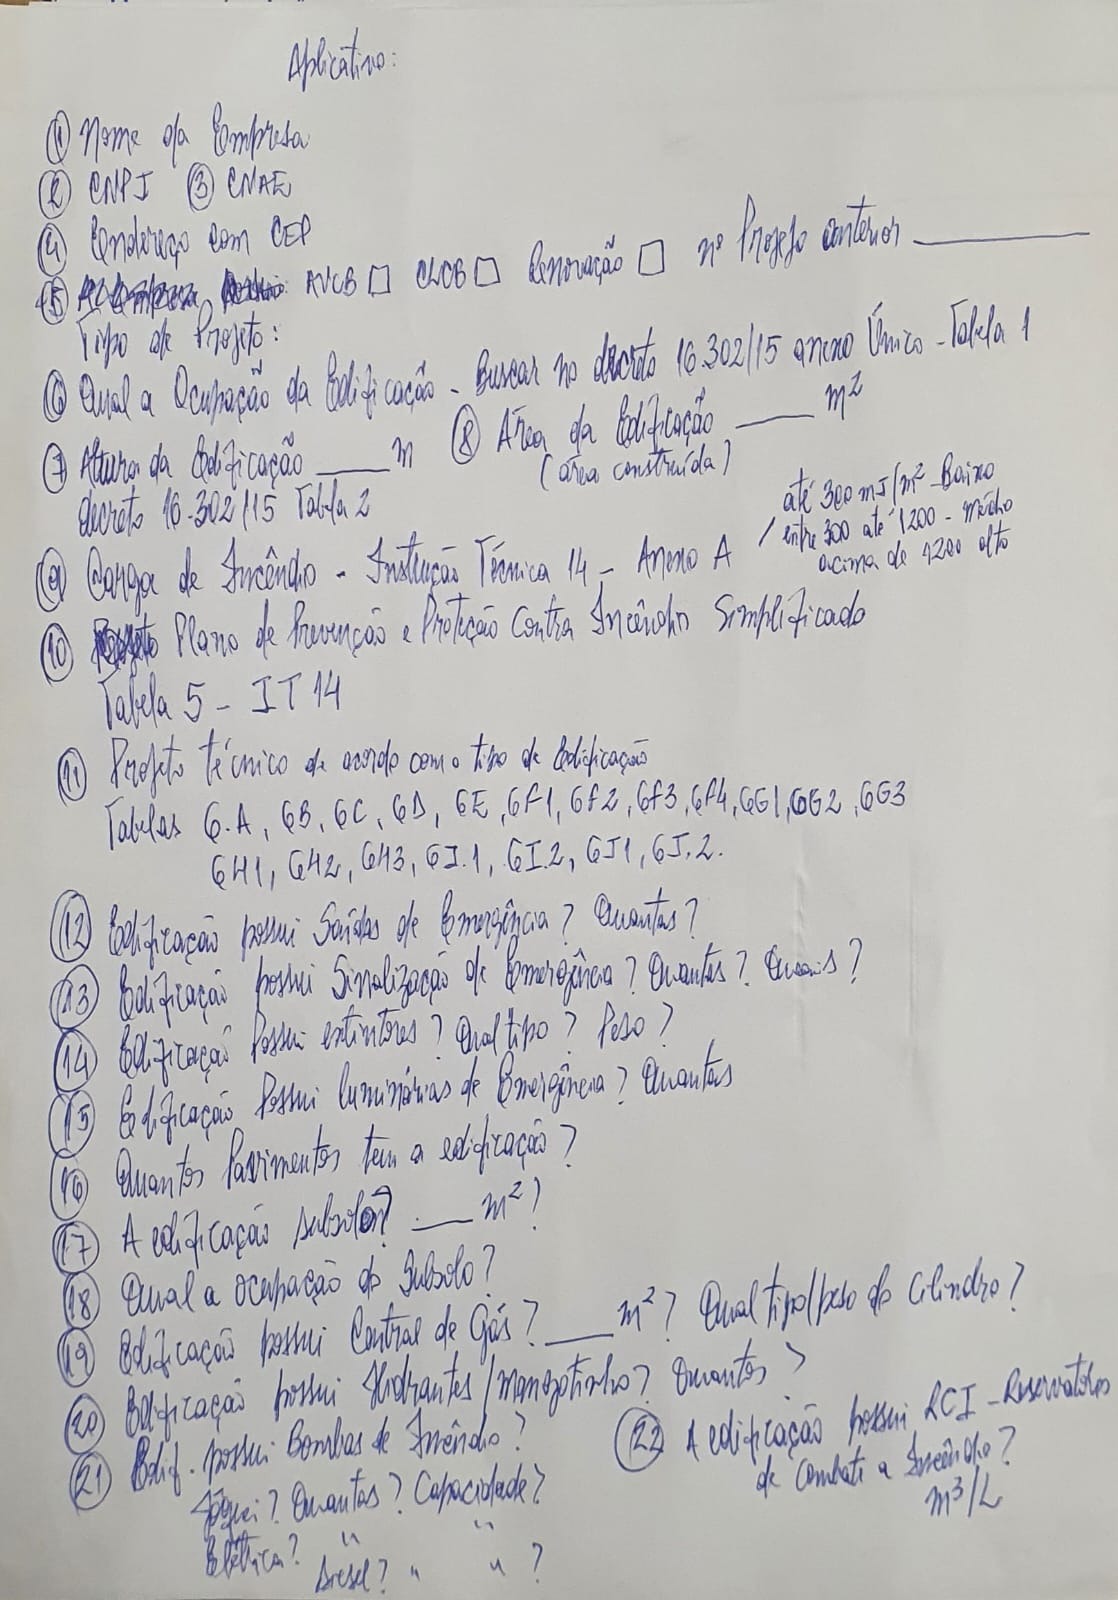 Aplicativo:
1 Nome da Empresa
2 CNPJ 3 CNAE
4 Endereço com CEP
5 AVCB □ CLCB □ Renovação □ nº Projeto anterior ______
Tipo de Projeto:
6 Qual a Ocupação da Edificação - Buscar no decreto 16.302/15 anexo Único - Tabela 1
7 Altura da Edificação ____ m 8 Área da Edificação ____ m²
(área construída)
decreto 16.302/15 Tabela 2
até 300 mJ/m² - Baixo
9 Carga de Incêndio - Instrução Técnica 14 - Anexo A / entre 300 até 1200 - médio
acima de 1200 alto
10 Plano de Prevenção e Proteção Contra Incêndio Simplificado
Tabela 5 - IT 14
11 Projeto técnico de acordo com o tipo de Edificação
Tabelas 6.A, 6B, 6C, 6D, 6E, 6F1, 6F2, 6F3, 6F4, 6G1, 6G2, 6G3
6H1, 6H2, 6H3, 6I.1, 6I.2, 6J1, 6J.2.
12 Edificação possui Saídas de Emergência? Quantas?
13 Edificação possui Sinalização de Emergência? Quantas? Quais?
14 Edificação Possui extintores? Qual tipo? Peso?
15 Edificação Possui luminárias de Emergência? Quantas
16 Quantos Pavimentos tem a edificação?
17 A edificação subsolo? ___ m²?
18 Qual a ocupação do Subsolo?
19 Edificação possui Central de Gás? ___ m²? Qual tipo/peso do Cilindro?
20 Edificação possui Hidrantes/mangotinho? Quantos?
21 Edif. possui Bombas de Incêndio?
Jóquei? Quantas? Capacidade?
Elétrica? " "
Diesel? " " ?
22 A edificação possui RCI - Reservatório
de Combate a Incêndio?
m³/L